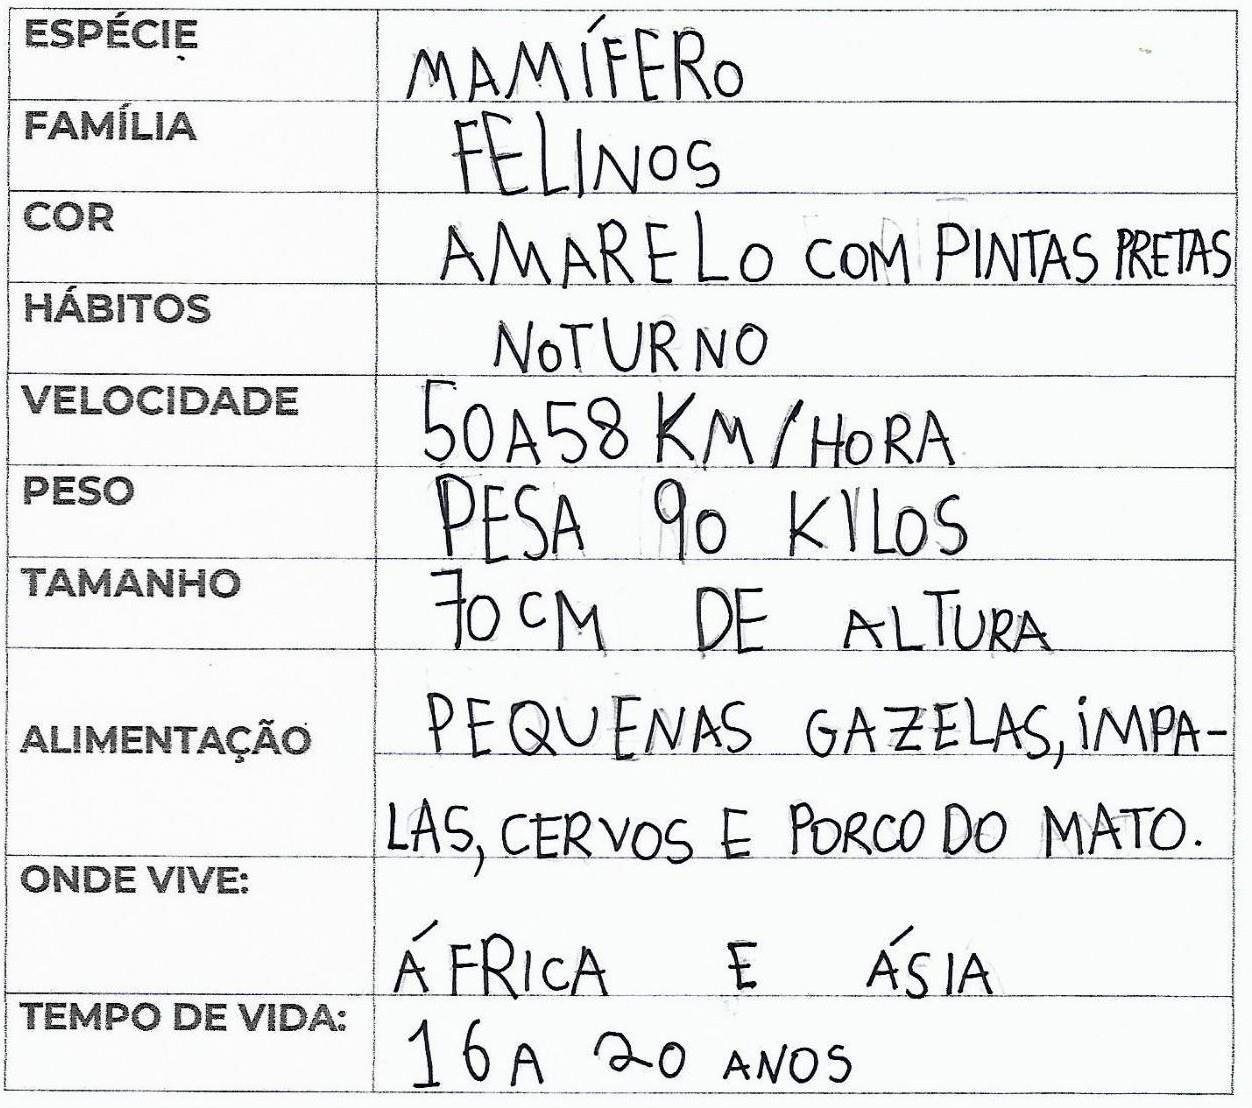 ESPÉCIE MAMÍFERO
FAMÍLIA FELINOS
COR AMARELO COM PINTAS PRETAS
HÁBITOS NOTURNO
VELOCIDADE 50 A 58 KM/HORA
PESO PESA 90 KILOS
TAMANHO 70 CM DE ALTURA
ALIMENTAÇÃO PEQUENAS GAZELAS, IMPA-
LAS, CERVOS E PORCO DO MATO.
ONDE VIVE: ÁFRICA E ÁSIA
TEMPO DE VIDA: 16 A 20 ANOS